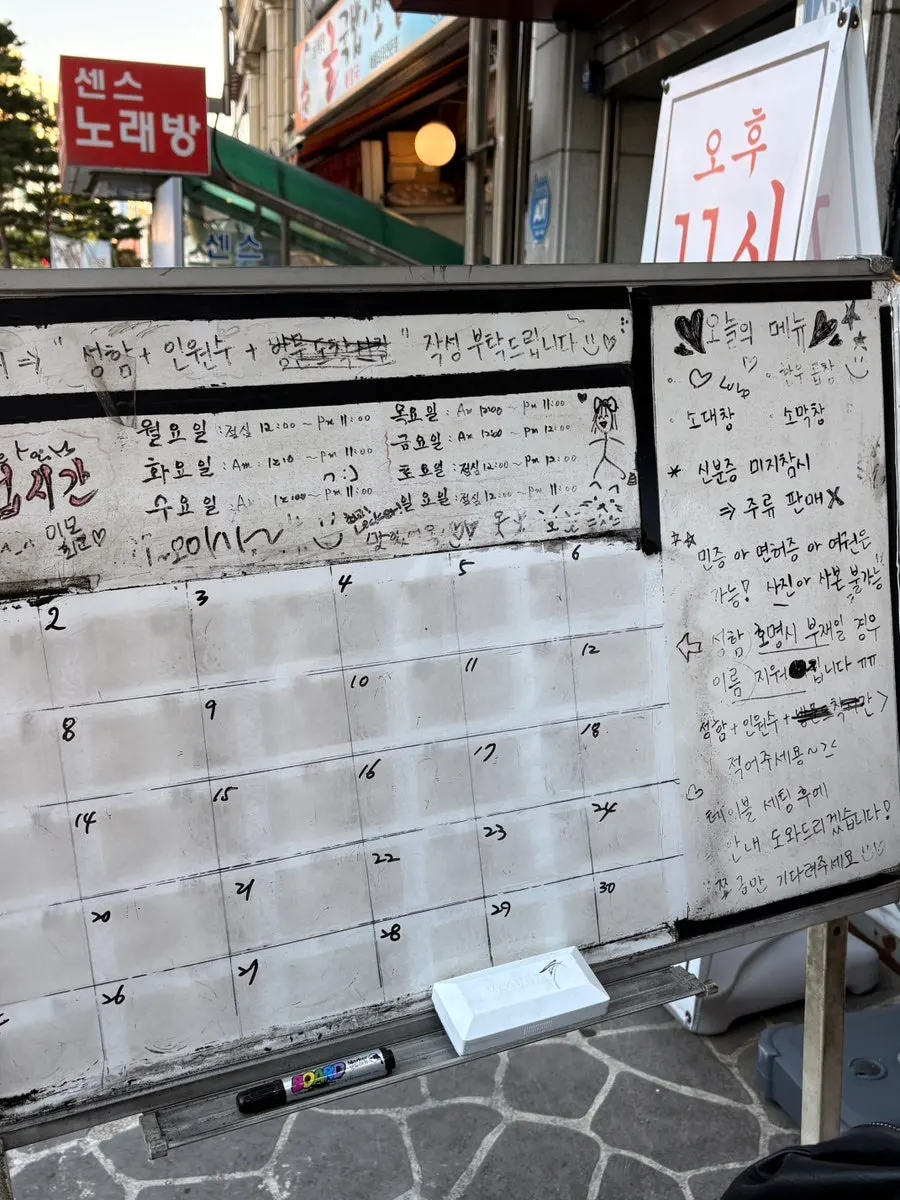 센스
노래방
센스
오후
11시
⇒ " 성함 + 인원수 + " 작성 부탁드립니다
시간
월요일 : 점심 12:00 ~ PM 11:00
화요일 : AM 12:00 ~ PM 11:00
수요일 : AM 12:00 ~ PM 11:00
목요일 : AM 12:00 ~ PM 11:00
금요일 : AM 12:00 ~ PM 12:00
토요일 : 점심 12:00 ~ PM 12:00
일요일 : 점심 12:00 ~ PM 11:00
이모
최고♡
오이시~
2 3 4 5 6
8 9 10 11 12
14 15 16 17 18
20 21 22 23 24
26 27 28 29 30
오늘의 메뉴
♡ Lub
한우곱창
소대창 소막창
* 신분증 미지참시
⇒ 주류 판매 X
민증 or 면허증 or 여권은
가능! 사진 or 사본 불가능
성함 호명시 부재일 경우
이름 지워집니다 ㅠㅠ
성함 + 인원수 +
적어주세용~><
테이블 세팅 후에
안내 도와드리겠습니다!
쪼금만 기다려주세요
BOARD